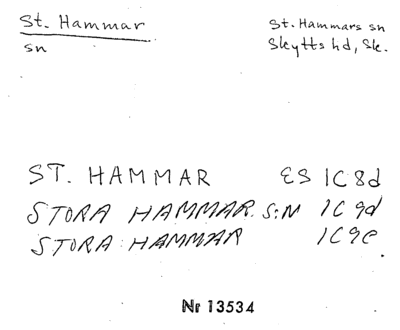 St. Hammar
sn
St. Hammars sn
Skytts hd, Sk.
ST. HAMMAR ES 1C 8d
STORA HAMMAR S:N 1C 9d
STORA HAMMAR 1C9e
Nr 13534